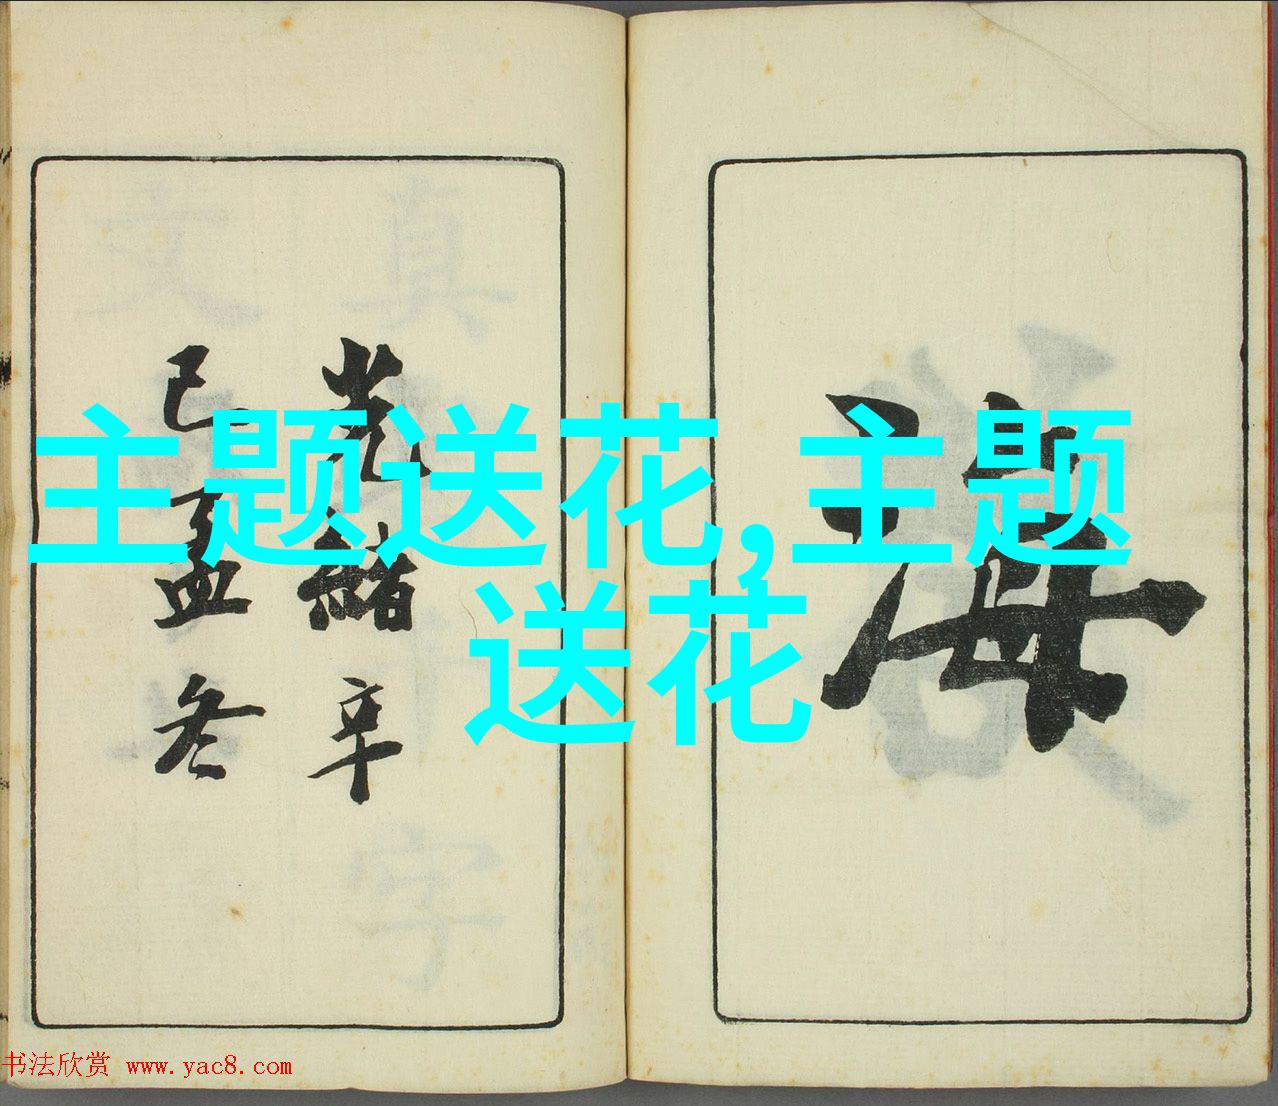 主题送花,主题
送花
海
光緒辛
巳孟冬
书法欣赏 www.yac8.com